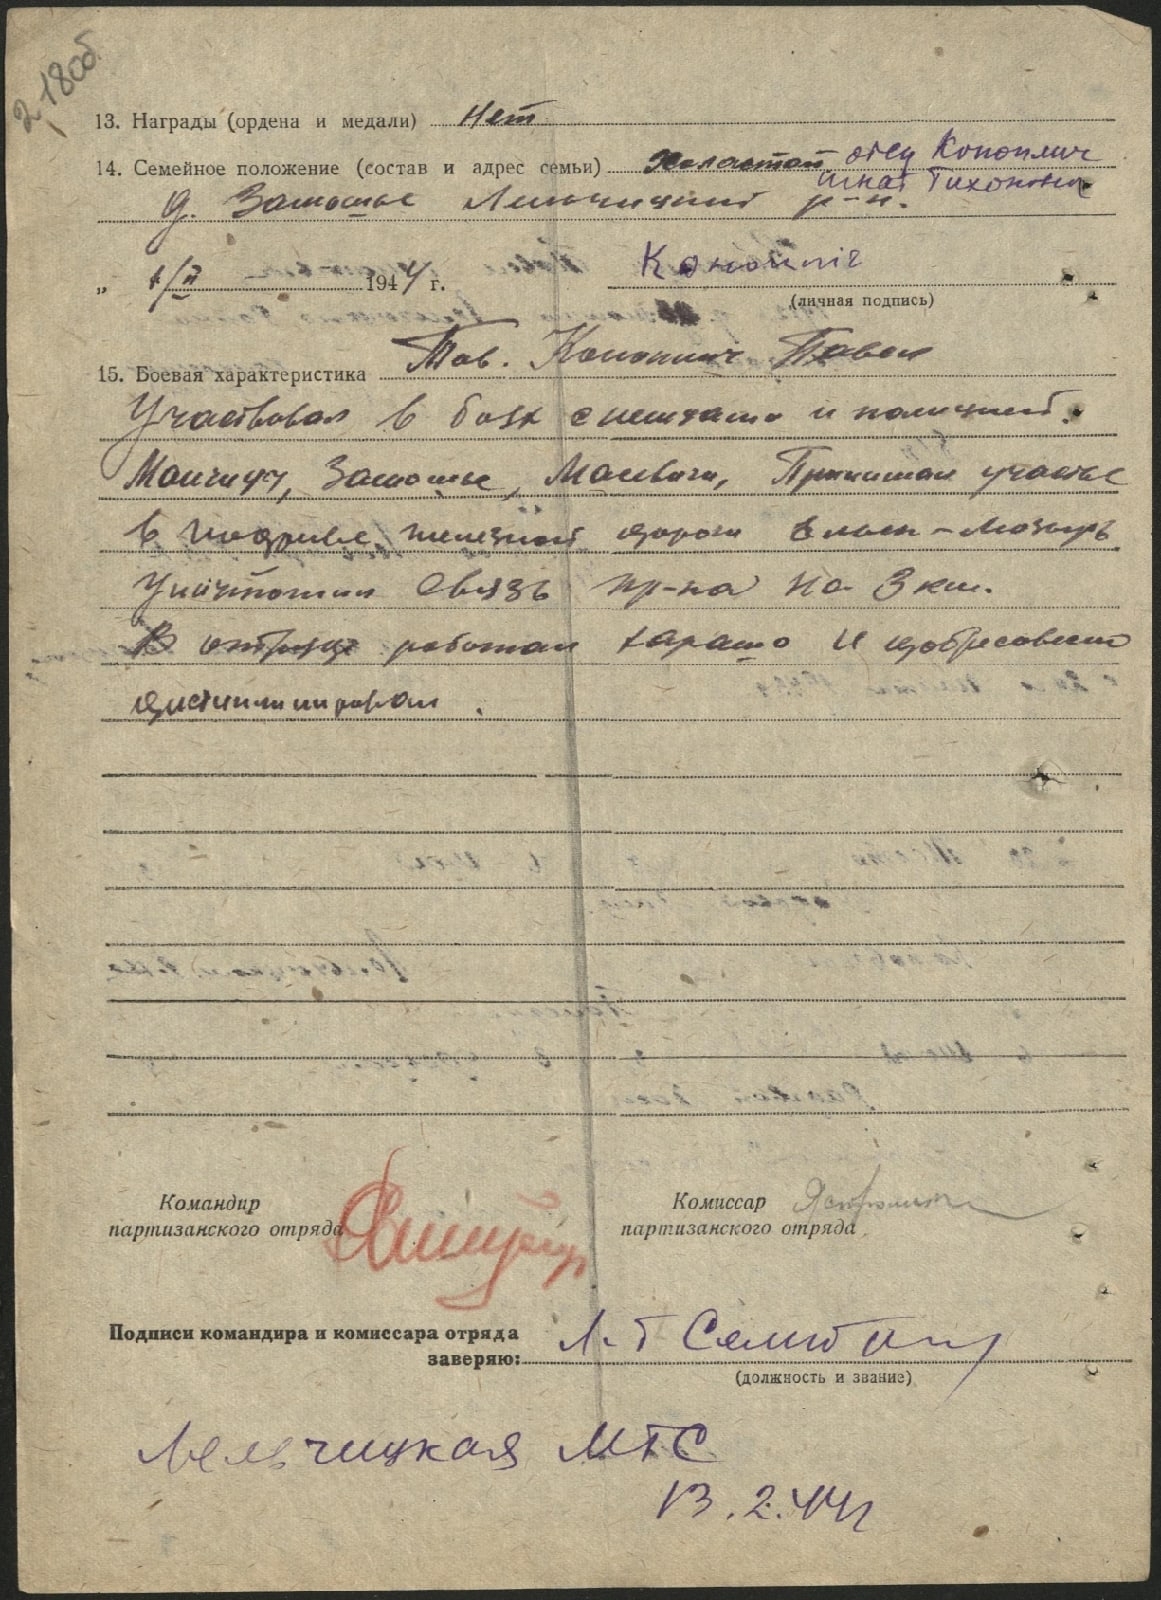 218об
13. Награды (ордена и медали) Нет
14. Семейное положение (состав и адрес семьи) Холастой отец Коноплич
Игнат Тихонович
д. Замошье Лельчицкий р-н.
„ 1/II 1944 г. Конопліч
(личная подпись)
15. Боевая характеристика Тов. Конопlич Павел
Участвовал в боях с немцами и полицией.
Замошье, Принимал участье
в подриве железной дороги Ельск-Мозырь
Уничтожил связь пр-ка на 3 км.
В отряде работал харашо и добросовесно
дистиплинирован.
Командир
партизанского отряда
Комиссар
партизанского отряда
Подписи командира и комиссара отряда
заверяю: Л-т
(должность и звание)
Лельчицкая МТС
13.2.44г